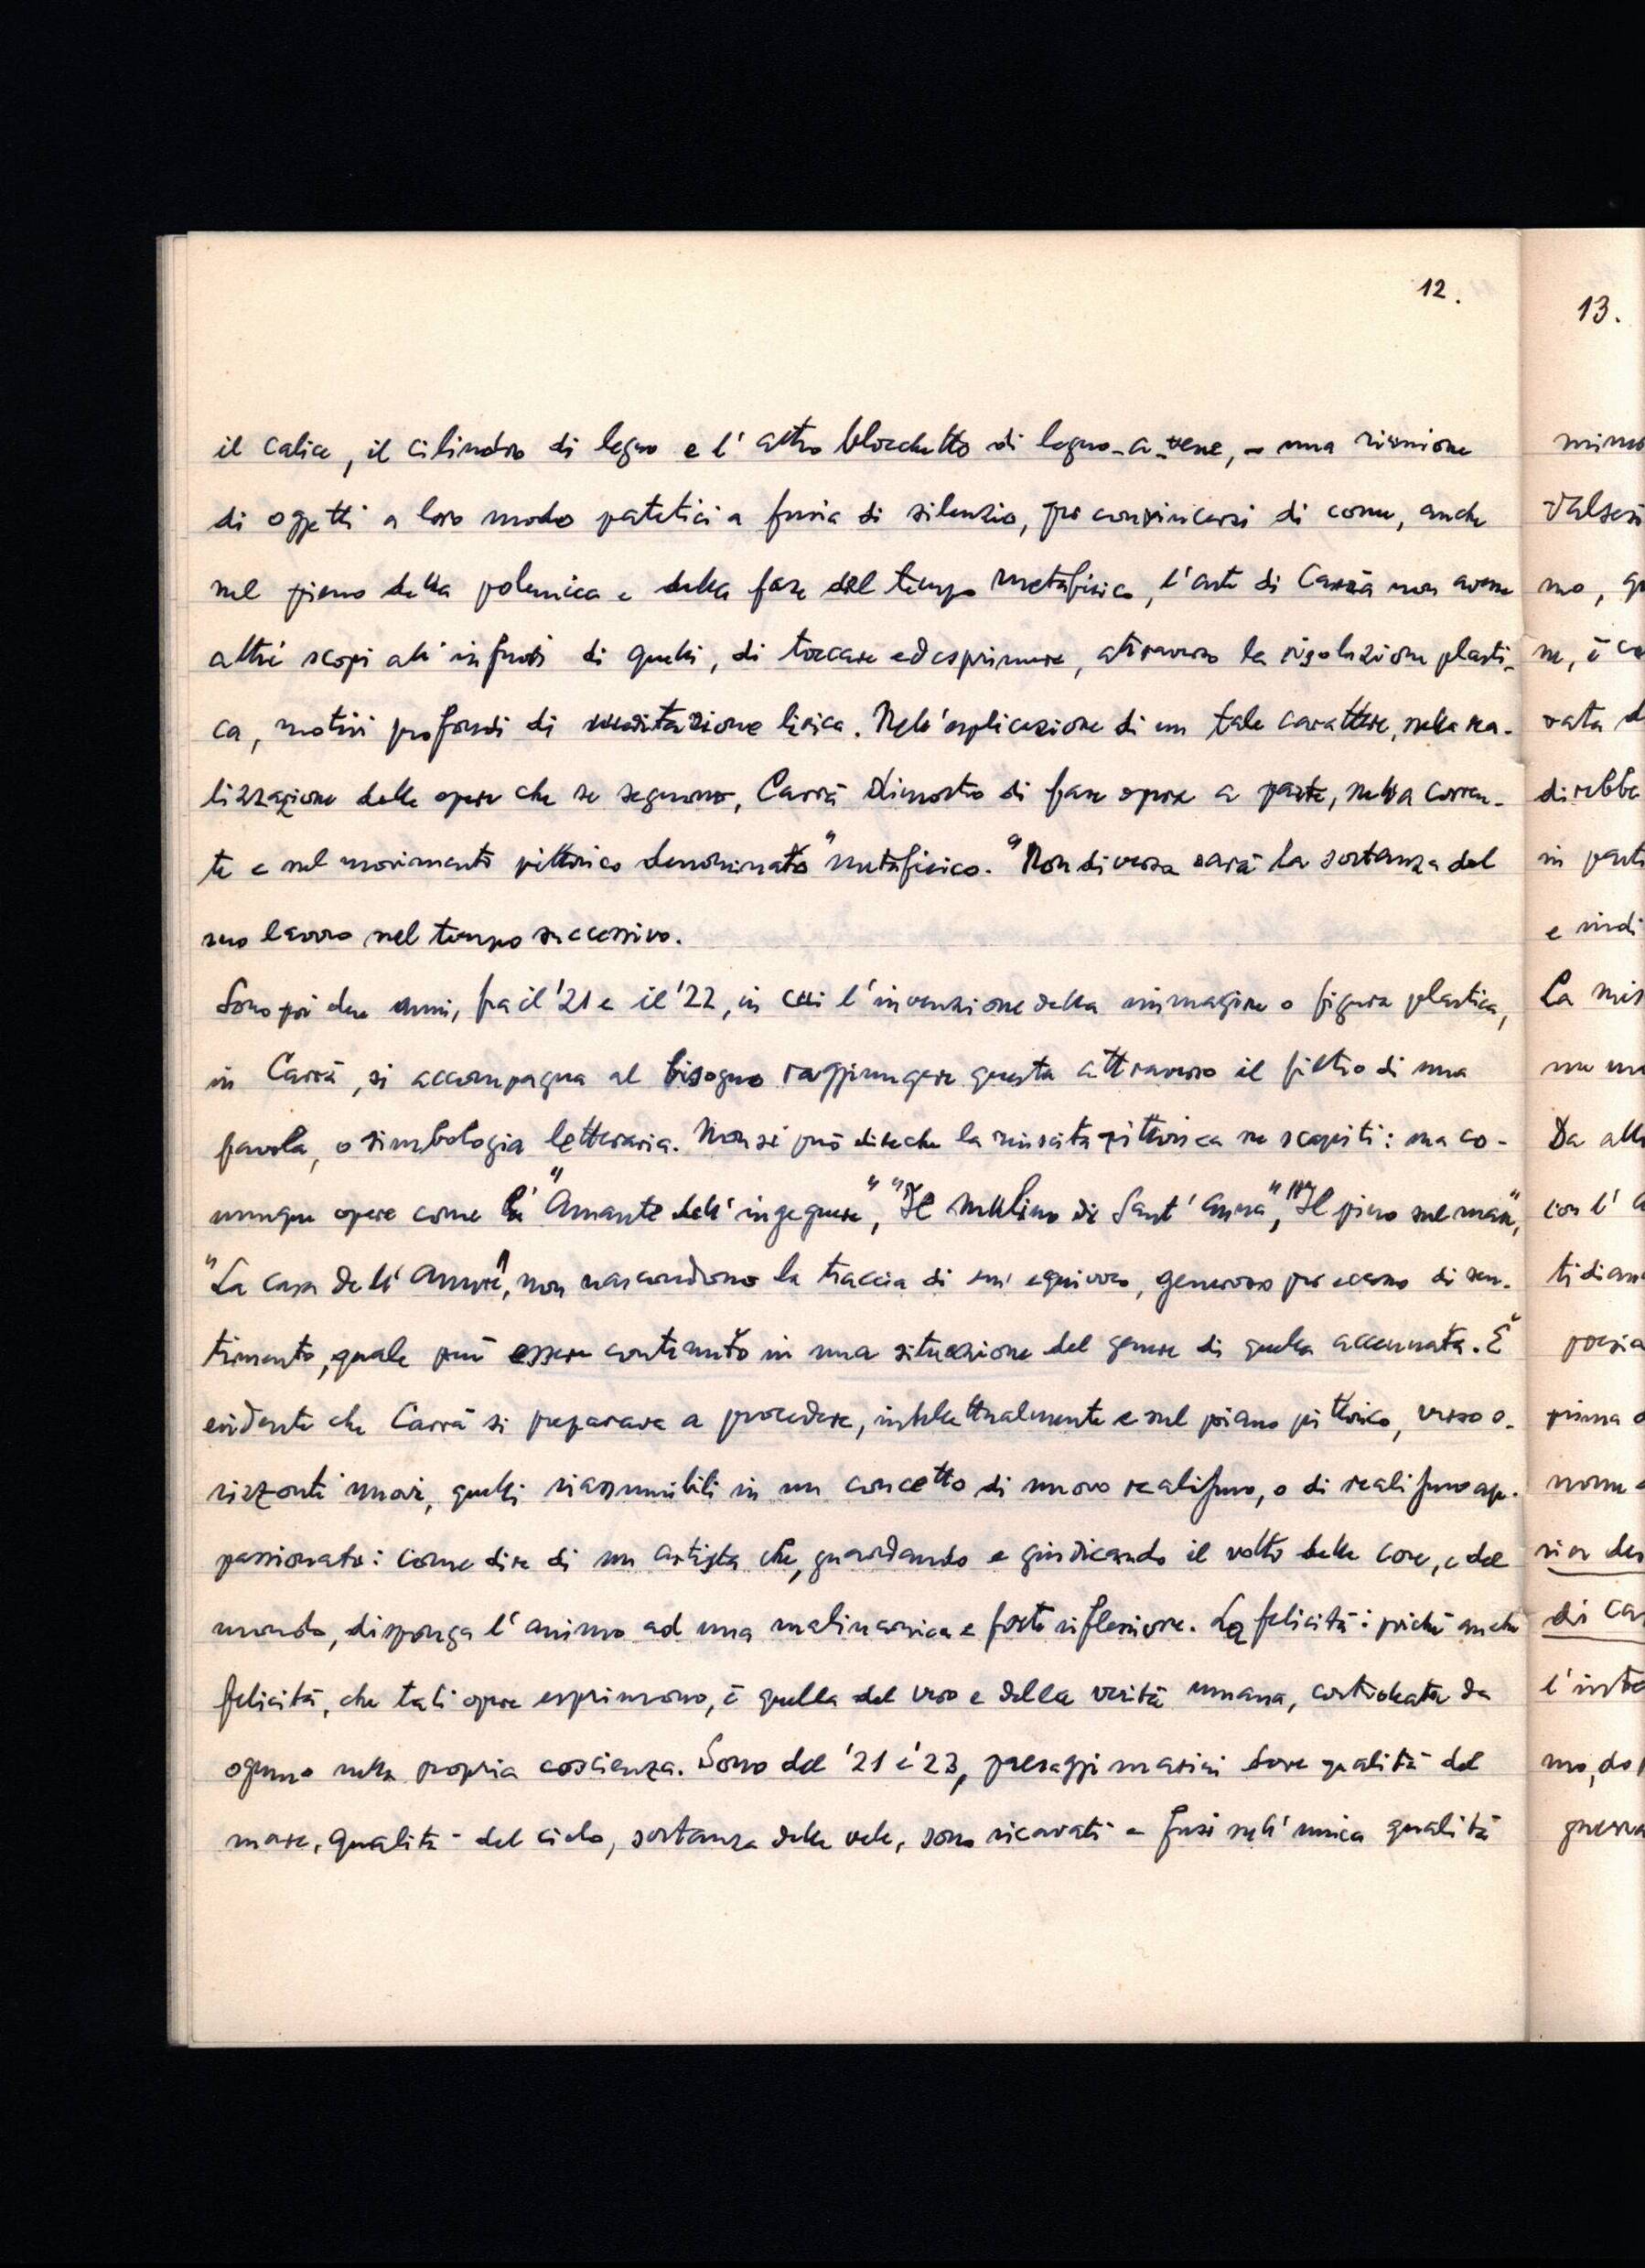 12.
il calice, il cilindro di legno e l'altro blocchetto di legno-a-vene, - una riunione
di oggetti a loro modo patetici a furia di silenzio, per convincersi di come, anche
nel pieno della polemica e della fase del tempo metafisico, l'arte di Carrà non avesse
altri scopi all'infuori di quelli, di toccare ed esprimere, attraverso la risoluzione plasti-
ca, motivi profondi di meditazione lirica. Nell'esplicazione di un tale carattere, nella rea-
lizzazione delle opere che ne seguono, Carrà dimostrò di fare opera a parte, nella corren-
te e nel movimento pittorico denominato "metafisico." Non diversa sarà la sostanza del
suo lavoro nel tempo successivo.
Sono poi due anni, fra il '21 e il '22, in cui l'invenzione della immagine o figura plastica,
in Carrà, si accompagna al bisogno raggiungere questa attraverso il filtro di una
favola, o simbologia letteraria. Non si può dire che la riuscita pittorica ne scapiti: ma co-
munque opere come l'"Amante dell'ingegnere", "Il mulino di Sant'Anna", "Il pino sul mare",
"La casa dell'Amore", non nascondono la traccia di un equivoco, generoso per eccesso di sen-
timento, quale può essere contenuto in una situazione del genere di quella accennata. È
evidente che Carrà si preparava a procedere, intellettualmente e sul piano pittorico, verso o-
rizzonti nuovi, quelli riassumibili in un concetto di nuovo realismo, o di realismo ap-
passionato: come dire di un artista che, guardando e giudicando il volto delle cose, e del
mondo, disponga l'animo ad una malinconica e forte riflessione. La felicità: poiché anche
felicità, che tali opere esprimono, è quella del vero e della verità umana, controllata da
ognuno nella propria coscienza. Sono del '21 e '23, paesaggi marini dove qualità del
mare, qualità del cielo, sostanza delle vele, sono ricavati e fusi nell'unica qualità
13.